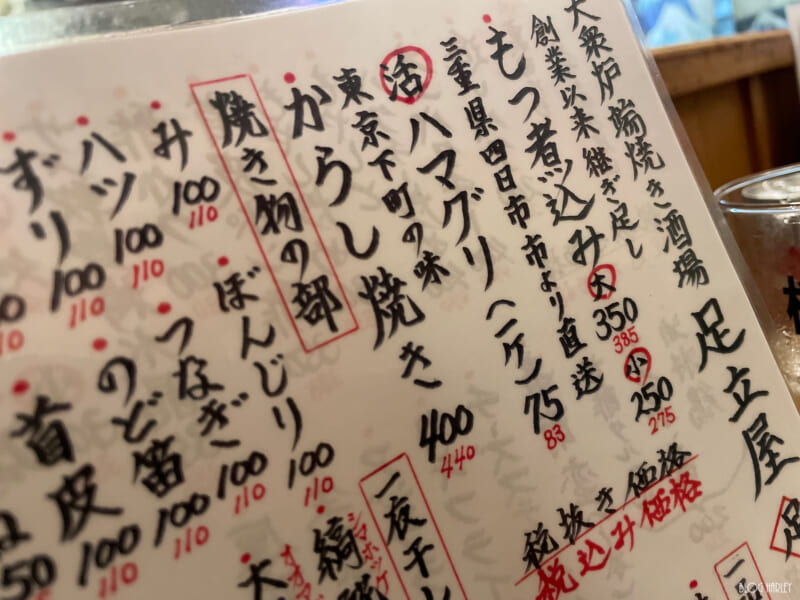 大衆炉端焼き酒場 足立屋
創業以来 継ぎ足し
もつ煮込み 大 350 385 小 250 275
三重県四日市市より直送
活ハマグリ(一ケ) 75 83
東京下町の味
からし焼き 400 440
税抜き価格
税込み価格
焼き物の部
み 100 110
ハツ 100 110
ずり 100 110
ぼんじり 100 110
つなぎ 100 110
のど笛 100 110
首皮 100 110
一夜干し
シマホッケ
縞
BLOG HARLEY